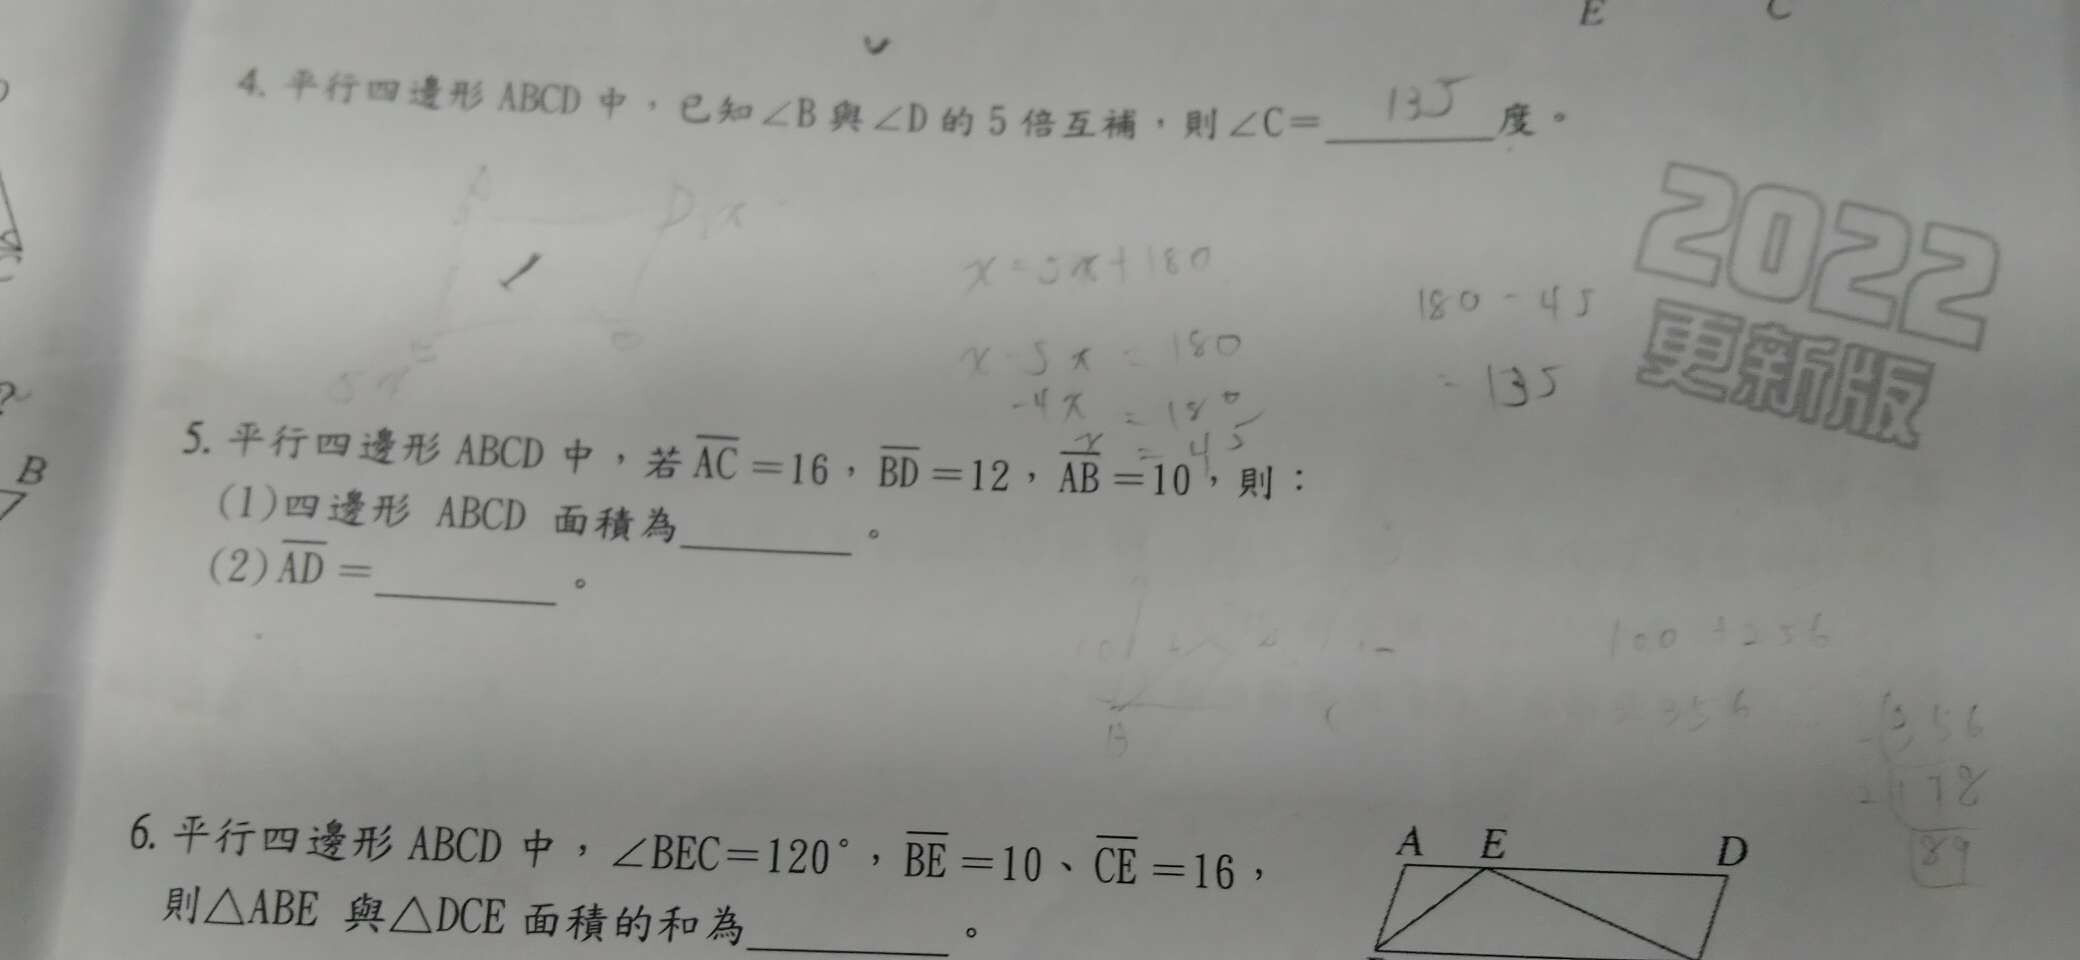 E C
4. 平行四邊形 ABCD 中，已知∠B 與∠D 的 5 倍互補，則∠C= 135 度。
D x
x = 5x + 180
180 - 45
2022
更新版
x - 5x = 180
= 135
5x
-4x = 180
x = 45
5. 平行四邊形 ABCD 中，若 A̅C̅ =16，B̅D̅ =12，A̅B̅ =10，則：
(1)四邊形 ABCD 面積為________。
(2) A̅D̅ =________。
B
100 + 256
= 356
356
178
89
6. 平行四邊形 ABCD 中，∠BEC=120°，B̅E̅ =10、C̅E̅ =16，
則△ABE 與△DCE 面積的和為________。
A E D